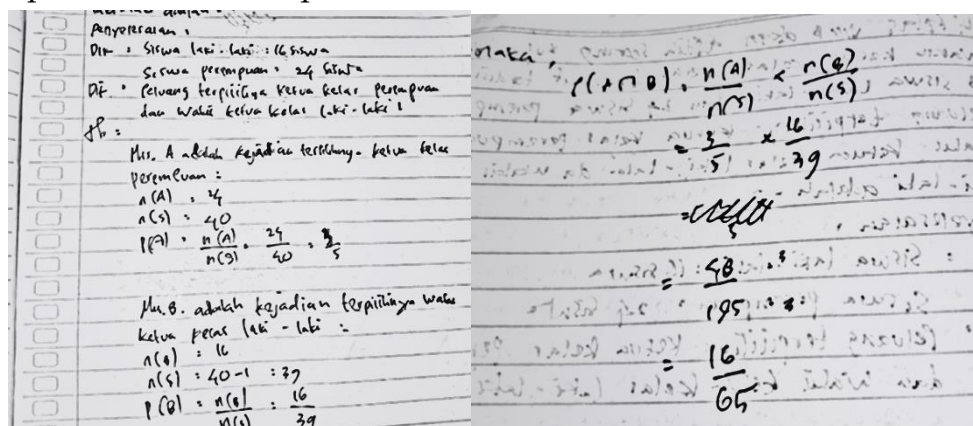 Penyelesaian :
Dik : Siswa laki-laki : 16 siswa
Siswa perempuan : 24 siswa
Dit : Peluang terpilihnya ketua kelas perempuan
dan wakil ketua kelas laki-laki !
Jb :
Mis. A adalah kejadian terpilihnya ketua kelas
perempuan :
n(A) : 24
n(S) : 40
P(A) = n(A)/n(S) = 24/40 = 3/5
Mis. B. adalah kejadian terpilihnya wakil
ketua kelas laki-laki :
n(B) : 16
n(S) : 40-1 : 39
P(B) = n(B)/n(S) : 16/39
maka,
P(A∩B) = n(A)/n(S) × n(B)/n(S)
= 3/5 × 16/39
= 48/195 : 3
= 16/65